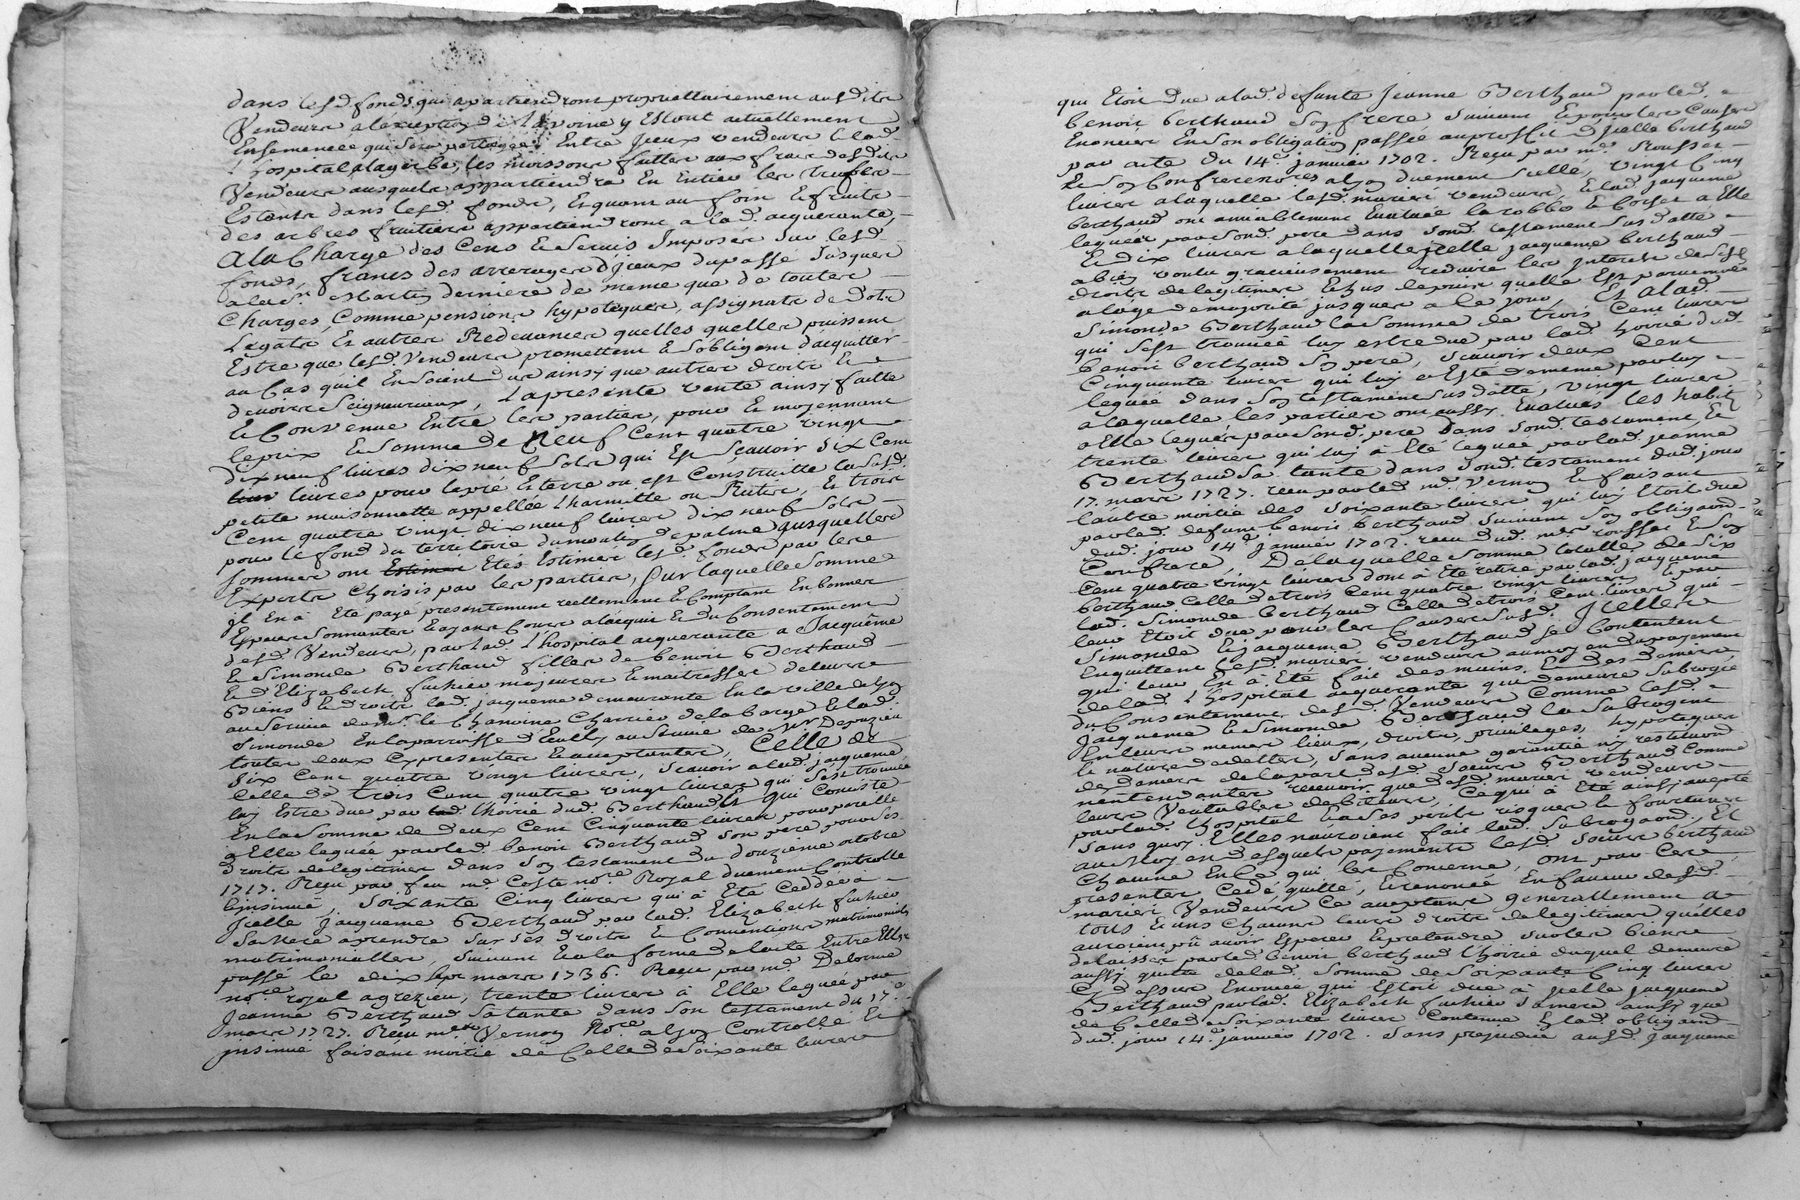 dans lesd. fonds qui apartiendront proprietairement ausdits
Vendeurs a l'exception de l'avoine y Estant actuellement
Ensemencée qui sera partagée Entre Iceux vendeurs & lad.
hospital a la gerbe, les moissons faittes aux frais desdits
Vendeurs ausquels appartiendra En Entier les trufles
Estants dans lesd. fonds, Et quant au foin & fruits
des arbres fruitiers appartiendront a lad. acquerante,
A la Charge des Cens & Servis Imposés sur lesd.
fonds, francs des arrerages d'jceux du passé Jusques
a la St. Martin derniere de meme que de toutes
Charges, Comme pensions, hypoteques, assignats de dots
Legats Et autres Redevances quelles quelles puissent
Estre que lesd. Vendeurs promettent & s'obligent d'acquitter
au Cas quil En soient dus ainsy que autres droits &
devoirs Seigneuriaux, La presente vente ainsy faitte
& Convenue Entre les parties, pour & moyennant
le prix & somme de Neuf Cent quatre vingt
dix neuf livres dix neuf sols qui Est scavoir six Cent
livres pour le pré Et terre ou est Construitte la susd.
petite maisonnette appellée Lharmitte ou Rutis, Et trois
Cent quatre vingt dix neuf livres dix neuf sols
pour le fond du territoire du montez de palme ausquelles
sommes ont Estimer Etés Estimés lesd. fonds par les
Experts Choisis par les parties, Sur laquelle somme
jl En a Eté payé presentement reellement & Comptant En bonnes
Especes Sonnantes & ayant Cours a l'acquit & du Consentement
desd. Vendeurs, par lad. L'hospital acquerante a Jacquême
& Simonde Berthaud filles de benoit Berthaud
& d'Elizabeth fuchiez majeures & maitresses de leurs
Biens & droits lad. jacqueme demeurante En la ville de lyon
au service de mr. le Chanoine Charrier de la barge & lad.
Simonde En la parroisse d'Eculy au Service de Sr. Depuzieu
toutes deux Cy presentes & acceptantes, Celle de
Six Cent quatre vingt livres, scavoir a lad. jacqueme
Celle de trois Cent quatre vingt livres qui s'est trouvée
luy Estre due par lad. lhoirie dud. Berthaud & qui Consiste
En la somme de deux Cent Cinquante livres pour parelle
a Elle leguée par led. benoit Berthaud son pere pour ses
droits de legitimes dans son testament du douzième octobre
1717. Reçu par feu me. Coste nore. Royal duement Controllé
& insinué, soixante Cinq livres qui a Eté Ceddée a
Icelle Jacqueme Berthaud par lad. Elizabeth fuchiez
sa mere a prendre sur ses droits & Conventions matrimoniales
matrimonialles, suivant & a la forme de l'acte Entre Elles
passé le dix sept mars 1736. Reçu par me. Delorme
nore. royal a grezieu, trente livres à Elle leguée par
Jeanne Berthaud sa tante dans son testament du 17e.
mars 1727. Reçu me. Vernon Nore. a lyon Controllé &
jnsinué faisant moitié de Celle de soixante livres
qui Etoit due a lad. defunte Jeanne Berthaud par led.
benoit berthaud son frere suivant & pour les Causes
Enoncées En son obligation passée au proffit d'jcelle berthaud
par acte du 14e. janvier 1702. Reçu par me. Rousset
& son Confrere nores. a lyon duement scellé, vingt Cinq
livres a laquelle lesd. mariés vendeurs & lad. jacqueme
berthaud ont amiablement Evaluée la robbe & Corset a Elle
leguées par sond. pere dans sond. testament sus datté
& dix livres a laquelle jcelle jacqueme berthaud
a bien voulu gracieusement reduire les Interets de sesd.
droits de legitimes Echus depuis quelle Est parvenue
a l'age de majorité jusques a ce jour, Et a lad.
Simonde Berthaud la somme de trois Cent livres
qui s'est trouvée luy estre due par lad. hoirie dud.
benoit berthaud son pere, scavoir deux Cent
Cinquante livres qui luy a Esté de meme par luy
leguée dans son testament sus datté, vingt livres
a laquelle les parties ont aussy Evalués les habits
a Elle legués par sond. pere dans sond. testament, Et
trente livres qui luy à Eté leguée par lad. jeanne
Berthaud sa tante dans sond. testament dud. jour
17. mars 1727. reçu par led. me. Vernon & faisant
l'autre moitié des soixante livres qui luy Etoit due
par led. defunt benoit berthaud suivant son obligaon.
dud. jour 14e. janvier 1702. reçu dud. me. rousset & son
Confrere, De laquelle somme totalle de six
Cent quatre vingt livres dont a Eté retiré par lad. jacqueme
berthaud Celle de trois Cent quatre vingt livres & par
lad. Simonde berthaud Celle de trois Cent livres qui
leur Etoit due pour les Causes susd. Icelles
Simonde & jacqueme Berthaud se Contentent
Enquittent lesd. mariés vendeurs au moyen du payement
qui leur En à Eté fait des mains & des deniers
de lad. L'hospital acquerante qui demeure subrogée
du Consentement desd. Vendeurs Comme lesd.
Jacqueme & Simonde Berthaud la subrogent
En leurs memes lieux, droits, privileges, hypoteques
& nature de dettes, sans aucune garantie ny restitution
de deniers de la part desd. soeurs Berthaud Comme
nentendantes recevoir que desd. mariés vendeurs
leurs Veritables debiteurs, Cequi à Eté ainsy accepté
par lad. L'hospital a ses perils risques & fortunes
sans quoy Elles n'auroient fait lad. subrogaon., Et
au Moyen desquels payements lesd. soeurs berthaud
Chacune En Ce qui les Concerne, ont par Ces
presentes Cedé quitté, & renoncé En faveur desd.
mariés Vendeurs Ce acceptant generallement a
tous & uns Chacuns leurs droits de legitimes qu'elles
auroient pû avoir Esperer & pretendre sur les biens
delaissés par led. benoit berthaud l'hoirie duquel demeure
aussy quitte de lad. somme de soixante Cinq livres
Cy dessus Enoncée qui Estoit due à jcelle jacqueme
Berthaud par lad. Elizabeth fuchiez sa mere ainsy que
de Celle de soixante livres Contenue En lad. obligaon.
dud. jour 14e. janvier 1702. Sans prejudice ausd. Jacqueme